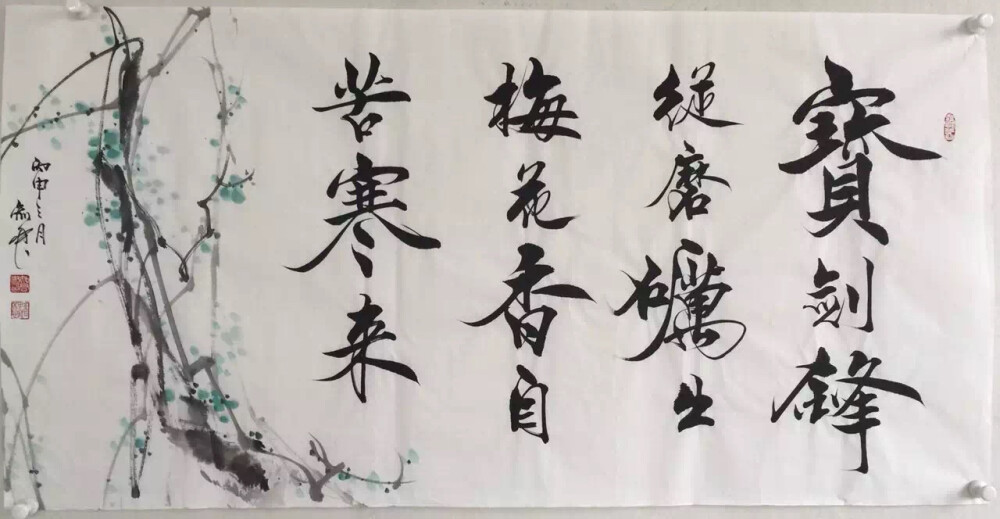 寶劍鋒
從磨礪出
梅花香自
苦寒来
丙申三月